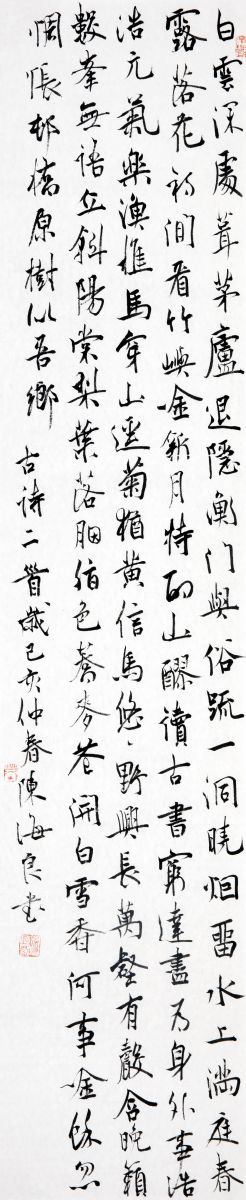 白雲深處葺茅廬退隱衡門與俗疏一洞曉烟畱水上滿庭春
露落花初閒看竹嶼吟新月特酌山醪讀古書窮達盡為身外事浩
浩元氣樂漁樵馬穿山逕菊猶黃信馬悠悠野興長萬壑有聲含晚籟
數峯無語立斜陽棠梨葉落胭脂色蕎麥花開白雪香何事吟餘忽
惆悵村橋原樹似吾鄉 古詩二首歲己亥仲春陳海良書